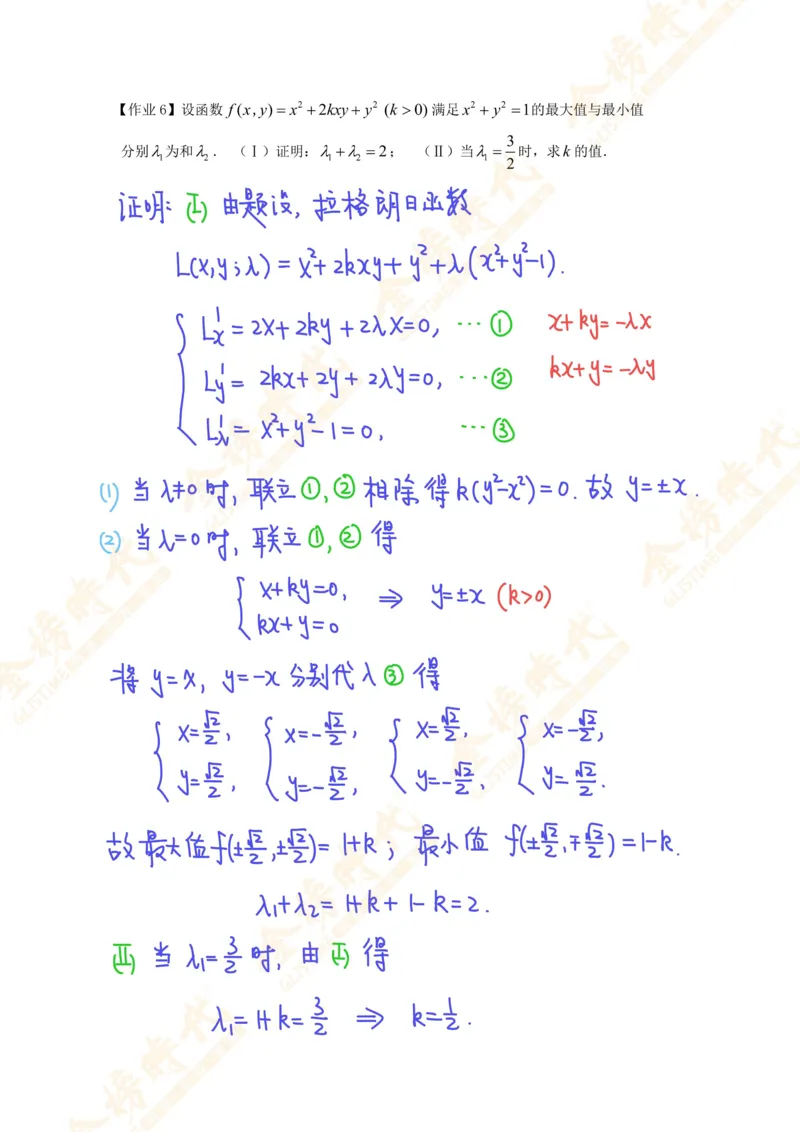 【作业6】设函数 f(x,y)= x²+2kxy+y² (k>0)满足x²+y²=1的最大值与最小值
分别λ₁为和λ₂. (Ⅰ)证明:λ₁+λ₂=2; (Ⅱ)当λ₁=3/2时,求k的值.
证明: (Ⅰ) 由题设, 拉格朗日函数
L(x,y;λ)=x²+2kxy+y²+λ(x²+y²-1).
L'x=2x+2ky+2λx=0, …① x+ky=-λx
L'y=2kx+2y+2λy=0, …② kx+y=-λy
L'λ=x²+y²-1=0, …③
(1) 当λ≠0时, 联立①,②相除得k(y²-x²)=0. 故 y=±x.
(2) 当λ=0时, 联立①,②得
{x+ky=0, kx+y=0 ⇒ y=±x (k>0)
将 y=x, y=-x 分别代入③得
{x=√2/2, y=√2/2, {x=-√2/2, y=-√2/2, {x=√2/2, y=-√2/2, {x=-√2/2, y=√2/2.
故最大值f(±√2/2,±√2/2)=1+k; 最小值 f(±√2/2,∓√2/2)=1-k.
λ₁+λ₂=1+k+1-k=2.
(Ⅱ) 当 λ₁=3/2 时, 由(Ⅰ)得
λ₁=1+k=3/2 ⇒ k=1/2.
金榜時代
GLISTIME